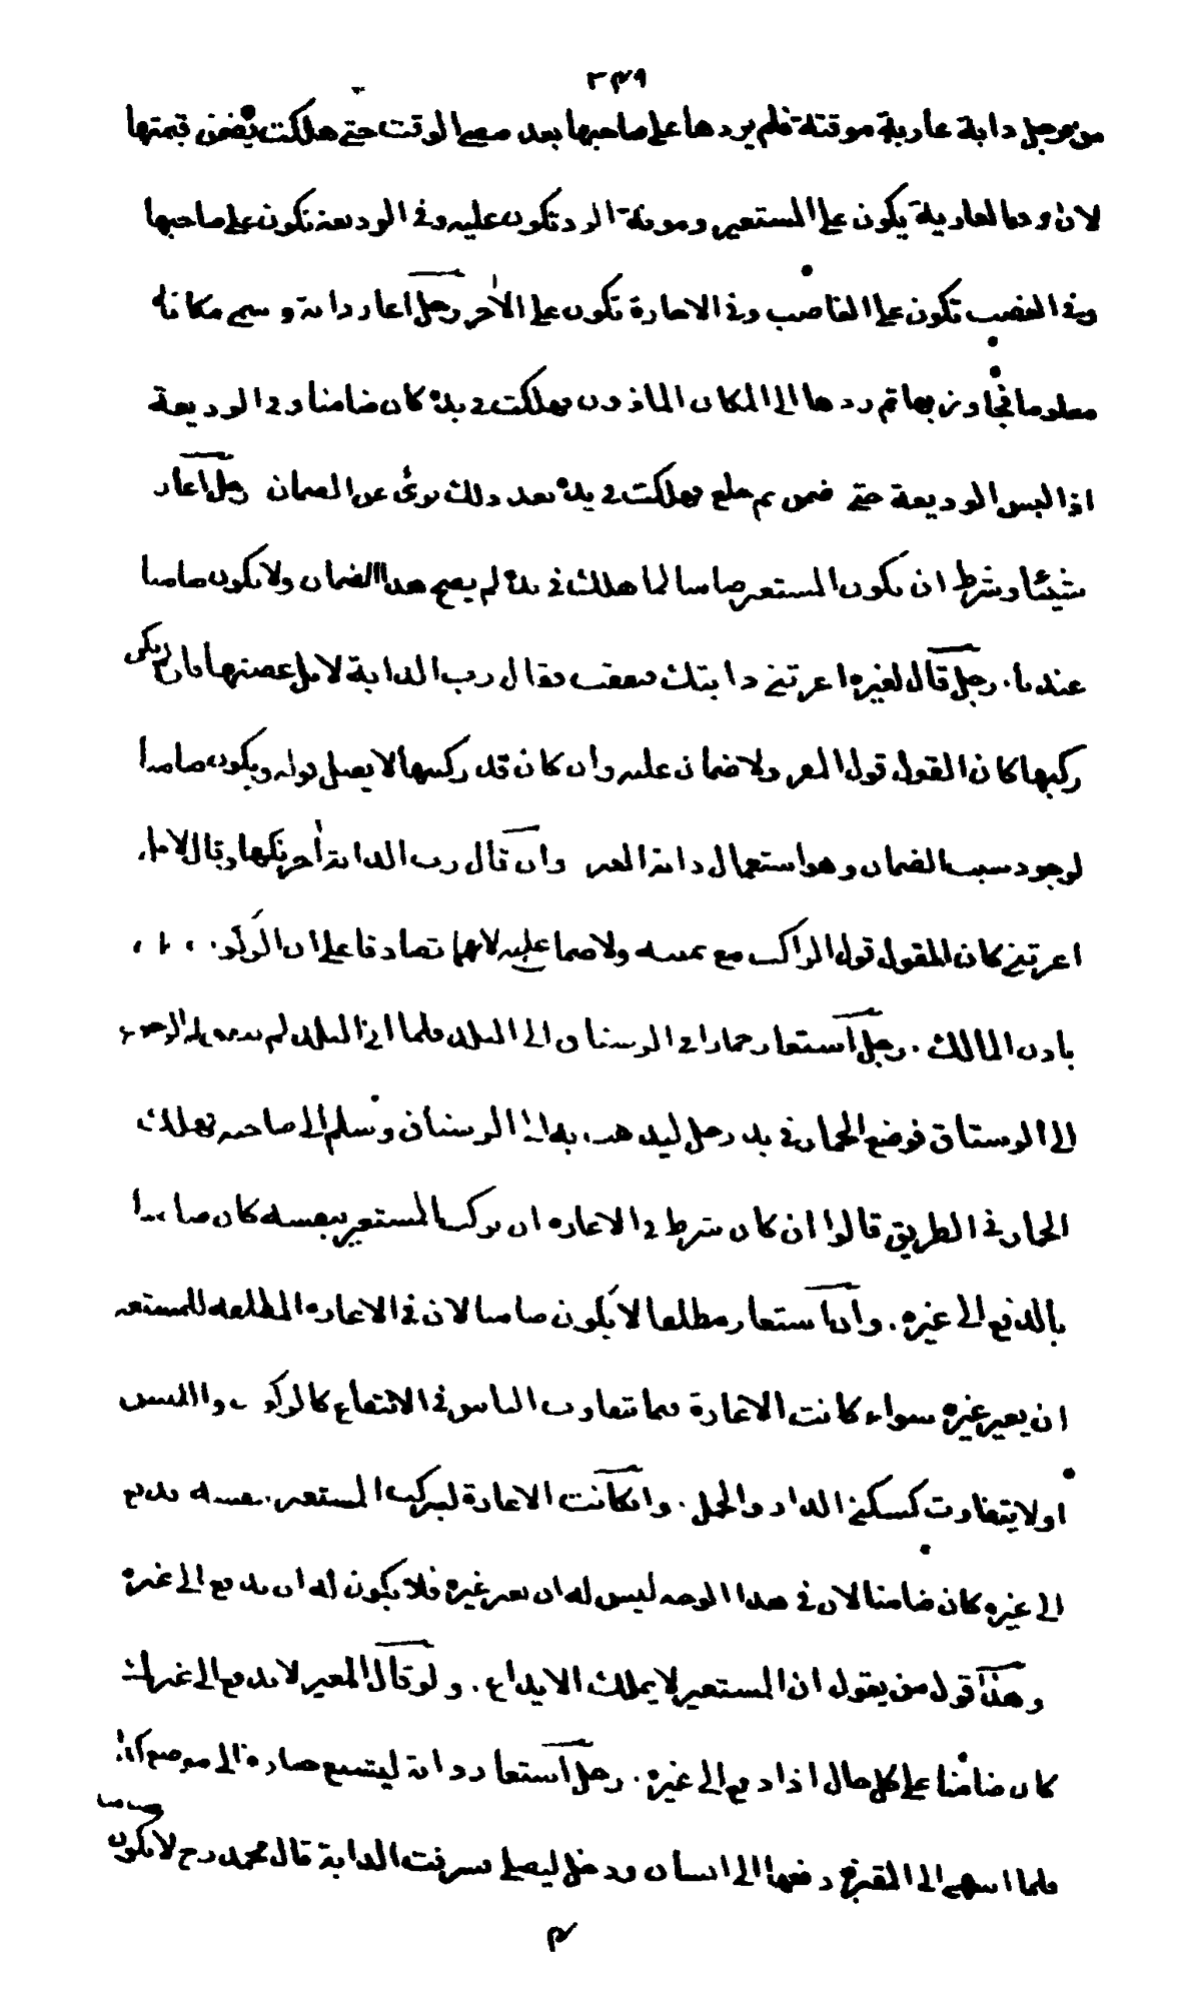 ٣٤٩
من رجل دابة عارية موقتة فلم يردها على صاحبها بعد مضى الوقت حتى هلكت يضمن قيمتها
لان رد العارية يكون على المستعير ومونة الرد تكون عليه وفى الوديعة تكون على صاحبها
وفى الغصب تكون على الغاصب وفى الاجارة تكون على الآجر رجل اعار دابة وسمى مكانا
معلوما فجاوز بها ثم ردها الى المكان الماذون فهلكت فى يده كان ضامنا وفى الوديعة
اذا لبس الوديعة حتى ضمن ثم خلع فهلكت فى يده بعد ذلك برئ عن الضمان رجل اعار
شيئا وشرط ان يكون المستعير ضامنا لما هلك فى يده لم يصح هذا الضمان ولا يكون ضامنا
عندنا . رجل قال لغيره اعرتنى دابتك فنفقت فقال رب الدابة لا بل غصبتها فان لم يكن
ركبها كان القول قول المعير ولا ضمان عليه وان كان قد ركبها لا يقبل قوله ويكون ضامنا
لوجود سبب الضمان وهو استعمال دابة الغير وان قال رب الدابة آجرتكها وقال لا بل
اعرتنى كان القول قول الراكب مع يمينه ولا ضمان عليه لانهما تصادقا على ان الركوب
باذن المالك . رجل استعار حمارا فى الرستاق الى البلد فلما اتى البلد لم يتفق له الرجوع
الى الرستاق فوضع الحمار فى يد رجل ليذهب به الى الرستاق ويسلم الى صاحبه فهلك
الحمار فى الطريق قالوا ان كان شرط فى الاعارة ان يركب المستعير بنفسه كان ضامنا
بالدفع الى غيره . وان استعار مطلقا لا يكون ضامنا لان فى الاعارة المطلقة للمستعير
ان يعير غيره سواء كانت الاعارة فيما يتفاوت الناس فى الانتفاع كالركوب واللبس
اولا يتفاوت كسكنى الدار والحمل . وان كانت الاعارة ليركب المستعير بنفسه فدفع
الى غيره كان ضامنا لان فى هذا الوجه ليس له ان يعير غيره فلا يكون له ان يدفع الى غيره
وهذا قول من يقول ان المستعير لا يملك الايداع . ولو قال المعير لا تدفع الى غيرك
كان ضامنا على كل حال اذا دفع الى غيره . رجل استعار دابة ليشيع جنازة الى موضع كذا
فلما انتهى الى المقبرة دفعها الى انسان ودخل ليصلى فسرقت الدابة قال محمد رح لا يكون ضامنا
م